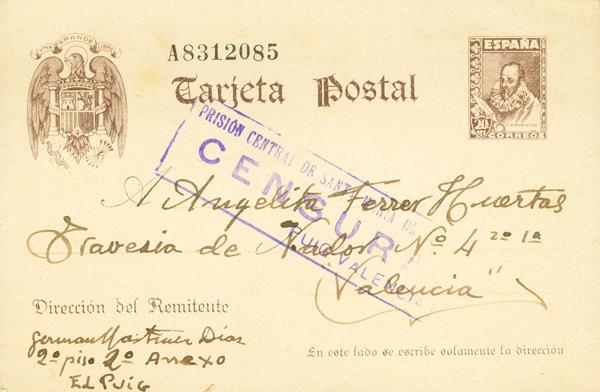 UNA GRANDE LIBRE
A8312085
Tarjeta Postal
ESPAÑA
CERVANTES
20
CTS
CORREOS
PRISIÓN CENTRAL DE SANTA MARIA DE
CENSURA
PUIG VALENCIA
A Angelita Ferrer Huertas
Travesia de Nador Nº 4 2º 1ª
Valencia"
Dirección del Remitente
German Martinez Días
2º piso 2º Anexo
El Puig
En este lado se escribe solamente la dirección